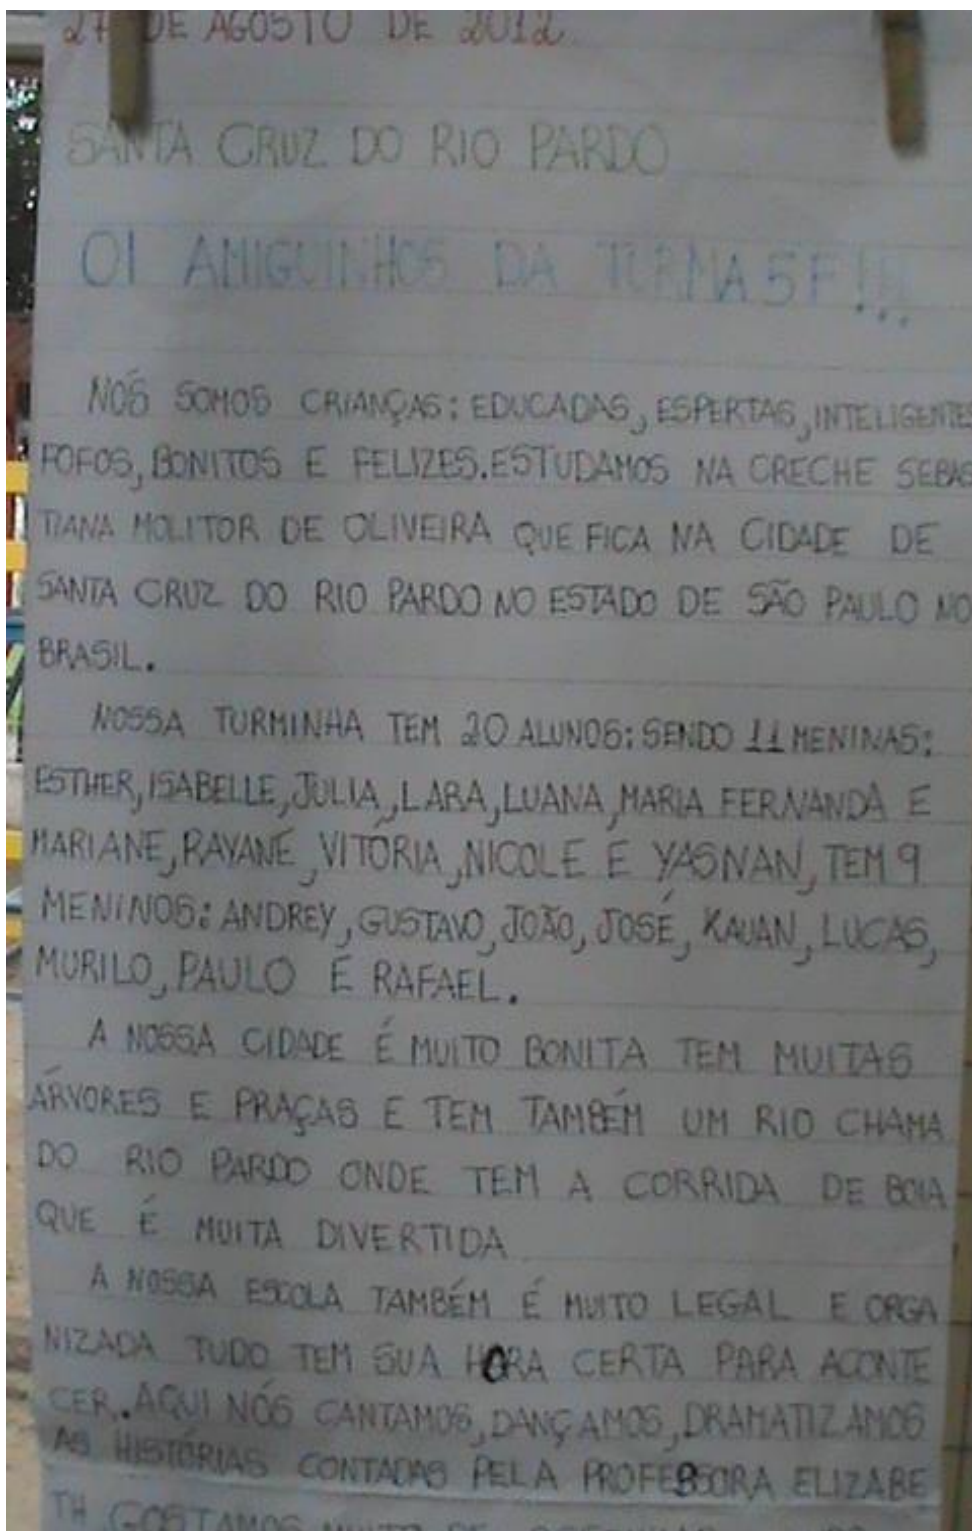 27 DE AGOSTO DE 2012
SANTA CRUZ DO RIO PARDO
OI AMIGUINHOS DA TURMA 5F!!!
NÓS SOMOS CRIANÇAS: EDUCADAS, ESPERTAS, INTELIGENTE
FOFOS, BONITOS E FELIZES. ESTUDAMOS NA CRECHE SEBAS
TIANA MOLITOR DE OLIVEIRA QUE FICA NA CIDADE DE
SANTA CRUZ DO RIO PARDO NO ESTADO DE SÃO PAULO NO
BRASIL.
NOSSA TURMINHA TEM 20 ALUNOS: SENDO 11 MENINAS:
ESTHER, ISABELLE, JULIA, LARA, LUANA, MARIA FERNANDA E
MARIANE, RAYANE, VITÓRIA, NICOLE E YASNAN, TEM 9
MENINOS: ANDREY, GUSTAVO, JOÃO, JOSÉ, KAUAN, LUCAS,
MURILO, PAULO E RAFAEL.
A NOSSA CIDADE É MUITO BONITA TEM MUITAS
ÁRVORES E PRAÇAS E TEM TAMBÉM UM RIO CHAMA
DO RIO PARDO ONDE TEM A CORRIDA DE BOIA
QUE É MUITA DIVERTIDA
A NOSSA ESCOLA TAMBÉM É MUITO LEGAL E ORGA
NIZADA TUDO TEM SUA HORA CERTA PARA ACONTE
CER. AQUI NÓS CANTAMOS, DANÇAMOS, DRAMATIZAMOS
AS HISTÓRIAS CONTADAS PELA PROFESSORA ELIZABE
TH GOSTAMOS MUITO DE